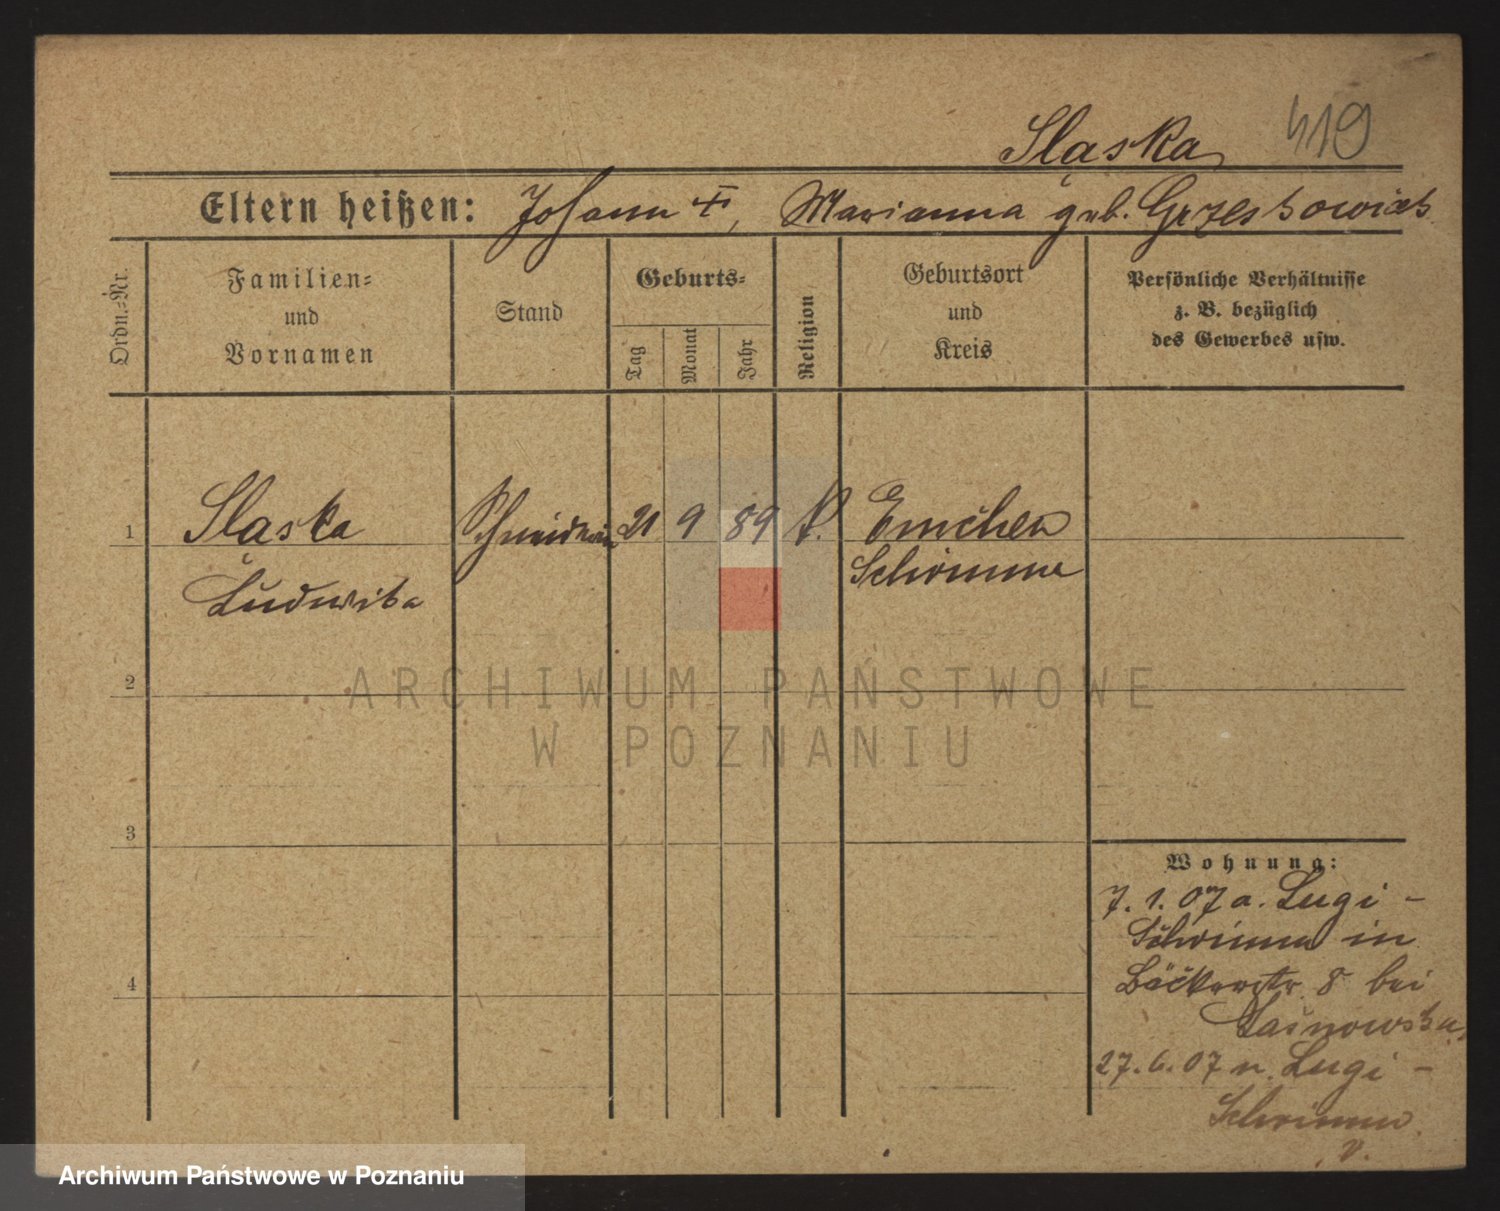 Sląska 419
Eltern heißen: Johann +, Marianna geb. Grzeskowiak
Ordn.=Nr.
Familien=
und
Vornamen
Stand
Geburts=
Tag
Monat
Jahr
Religion
Geburtsort
und
Kreis
Persönliche Verhältnisse
z. B. bezüglich
des Gewerbes usw.
1 Sląska Schneiderin 21 9 89 k. Emchen
Ludwika Schrimm
2
3
4
Wohnung:
7. 1. 07 a. Lugi -
Schrimm in
Bäckerstr. 8 bei
27. 6. 07 n. Lugi -
Schrimm
v.
ARCHIWUM PAŃSTWOWE
W POZNANIU
Archiwum Państwowe w Poznaniu